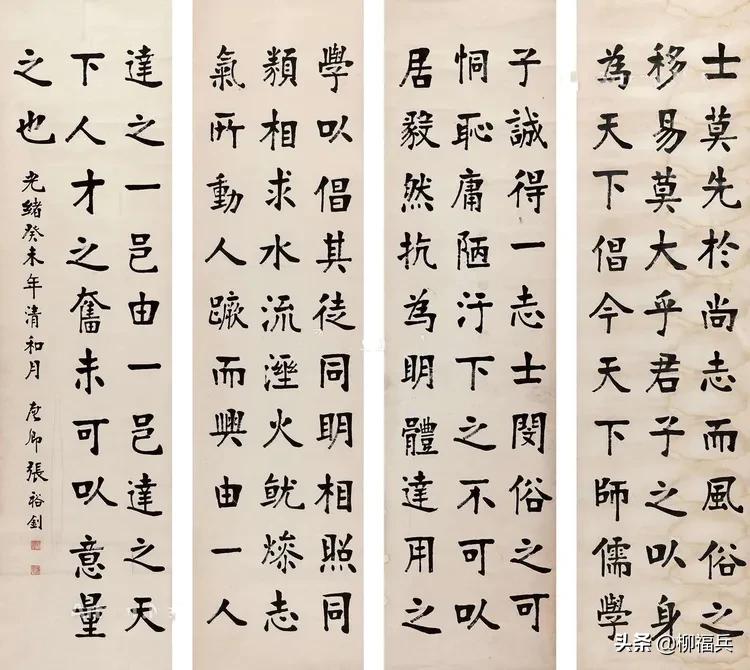 士莫先於尚志而風俗之
移易莫大乎君子之以身
為天下倡今天下師儒學
子誠得一志士閔俗之可
恫恥庸陋汙下之不可以
居毅然抗為明體達用之
學以倡其徒同明相照同
類相求水流溼火就燥志
氣所動人蹶而興由一人
達之一邑由一邑達之天
下人才之奮未可以意量
之也 光緒癸未年清和月 廉卿張裕釗
头条 @柳福兵